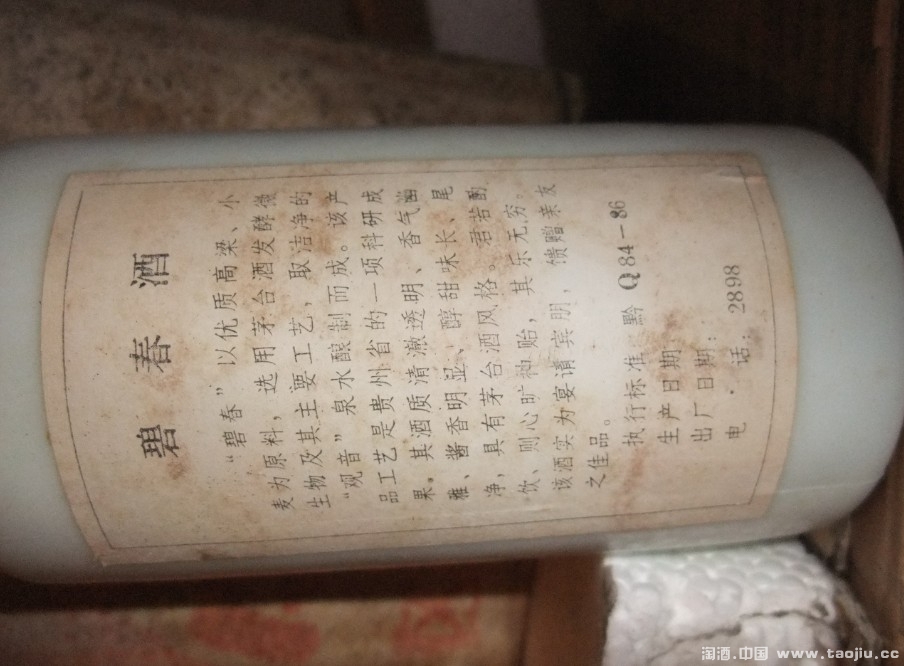 碧春酒
“碧春”以优质高梁、小
麦为原料，选用茅台酒发酵微
生物及其主要工艺，取洁净的
“观音”泉水酿制而成。该产
品工艺是贵州省的一项科研成
果。其酒质清澈透明、香气幽
雅、酱香明显、醇甜味长、尾
净，具有茅台酒风格。君若酌
饮、则心旷神贻，其乐无穷。
该酒实为宴请宾朋，馈赠亲友
之佳品。
执行标准 黔Q84-86
生产日期
出厂日期：
电·话：2898
淘酒.中国 www.taojiu.cc